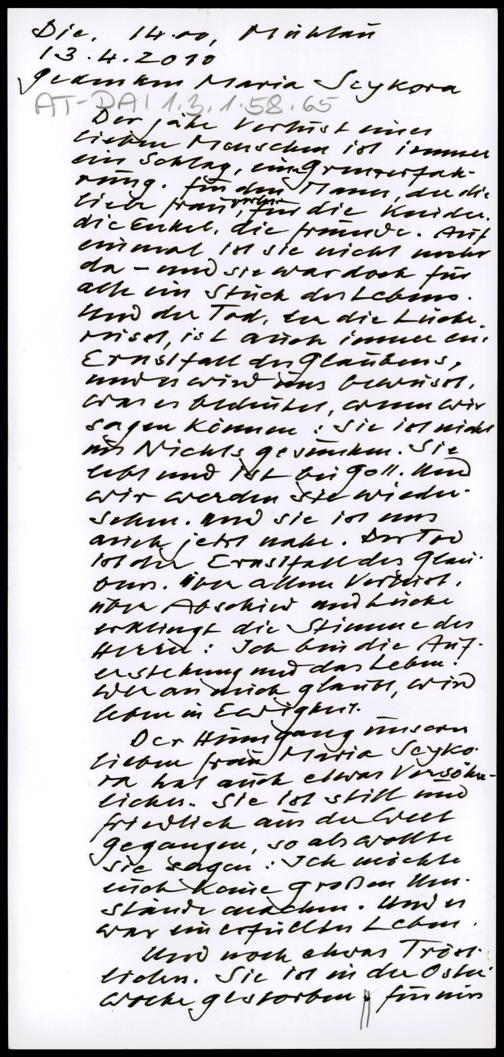 Die, 14.00, Mühlau
13.4.2010
gedenken Maria Scykora
AT-DAI 1.3.1.58.65
Der jähe Verlust eines
lieben Menschen ist immer
ein Schlag, eine Grenzerfah-
rung. Für den Mann, der die
liebe Frau verlor, für die Kinder.
die Enkel, die Freunde. Auf
einmal ist sie nicht mehr
da – und sie war doch für
alle ein Stück des Lebens.
Und der Tod, der die Lücke
reisst, ist auch immer ein
Ernstfall des Glaubens,
und es wird uns bewusst,
was es bedeutet, wenn wir
sagen können: Sie ist nicht
ins Nichts gesunken. Sie
lebt und ist bei Gott. Und
wir werden sie wieder-
sehen. Und sie ist uns
auch jetzt nahe. Der Tod
ist der Ernstfall des Glau-
bens. Über allem Verlust,
über Abschied und Lücke
erklingt die Stimme des
Herrn: Ich bin die Auf-
erstehung und das Leben!
Wer an mich glaubt, wird
leben in Ewigkeit.
Der Heimgang unserer
lieben Frau Maria Scyko-
ra hat auch etwas Versöhn-
liches. Sie ist still und
friedlich aus der Welt
gegangen, so als wollte
sie sagen: Ich möchte
euch keine großen Um-
stände machen. Und es
war ein erfülltes Leben.
Und noch etwas Tröst-
liches. Sie ist in der Oster-
woche gestorben. Für uns